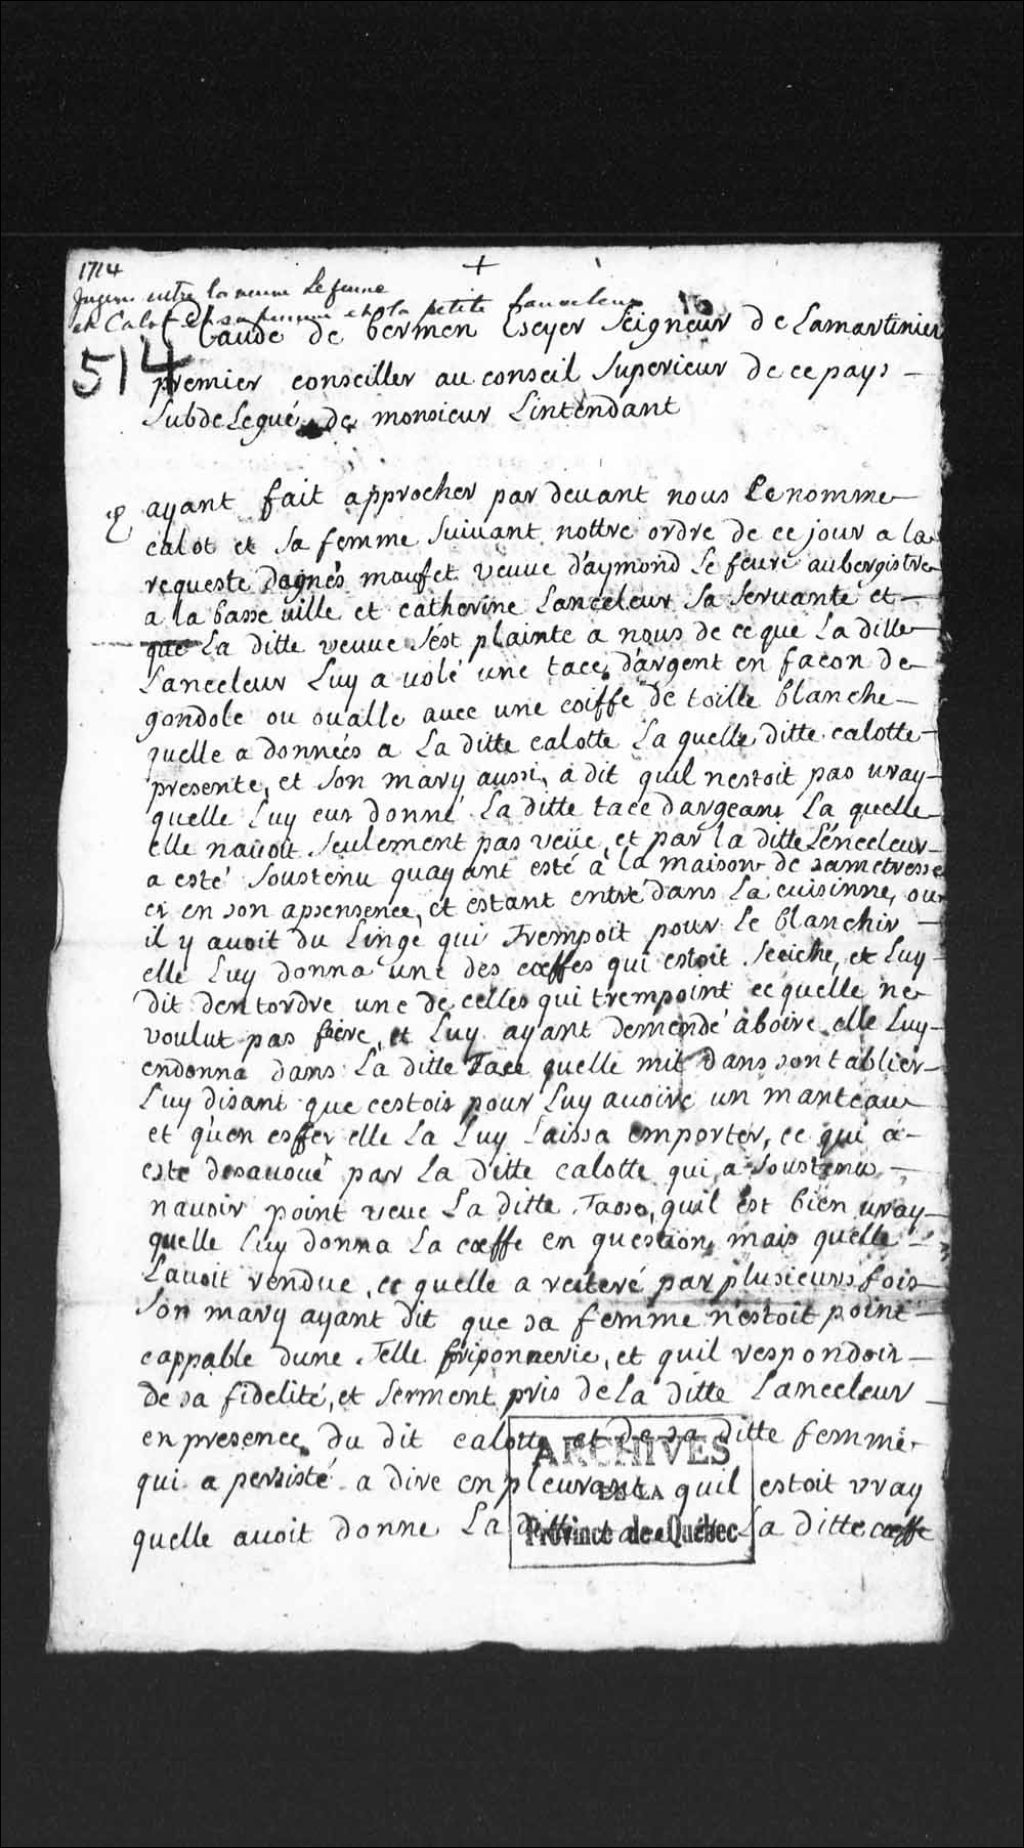 1714
+
Jugem. entre la veuve Lefevre
et Calot et sa femme et la petite Lanceleur
15
514
Claude de Bermen Escyer Seigneur de Lamartinier
premier conseiller au conseil Superieur de ce pays
Subdelegué de monsieur Lintendant
ayant fait approcher par devant nous Lenomme
calot et sa femme suivant nottre ordre de ce jour a la
requeste dagnés maufet veuve d'aymond Le feure aubergistre
a la basse uille et catherine Lanceleur sa servante et
que La ditte veuve s'est plainte a nous de ce que La ditte
Lanceleur Luy a uolé une tace d'argent en facon de
gondole ou oualle avec une coiffe de toille blanche
quelle a données a La ditte calotte La quelle ditte calotte
presente, et son mary aussi, a dit quil nestoit pas uray
quelle Luy eut donné La ditte tace dargeant La quelle
elle nauoit seulement pas veüe, et par la ditte Lenceleur
a esté soustenu quayant esté a la maison de sa metresse
et en son apsensence, et estant entré dans La cuisinne, ou
il y auoit du Linge qui Trempoit pour Le blanchir
elle Luy donna une des cœffes qui estoit seeiche, et Luy
dit dentordre une de celles qui trempoint ce quelle ne
voulut pas faire, et Luy ayant demendé à boire elle Luy
endonna dans La ditte Tace quelle mit dans son tablier
Luy disant que cestois pour Luy auoire un manteau
et qu'en esffer elle La Luy Laissa emporter, ce qui a
este desauoué par La ditte calotte qui a soustenu
nauoir point veue La ditte Tasse, quil est bien uray
quelle Luy donna La cœffe en question, mais quelle
Lauoit vendue, ce quelle a reiteré par plusieurs fois
Son mary ayant dit que sa femme n'estoit point
cappable dune Telle friponnerie, et quil respondoit
de sa fidelité, et serment pris de La ditte Lanceleur
en presence du dit calotte et de sa ditte femme
qui a persisté a dire en pleurant quil estoit vray
quelle auoit donne La ditte tace et La ditte cœffe
ARCHIVES
DE LA
Province de Québec